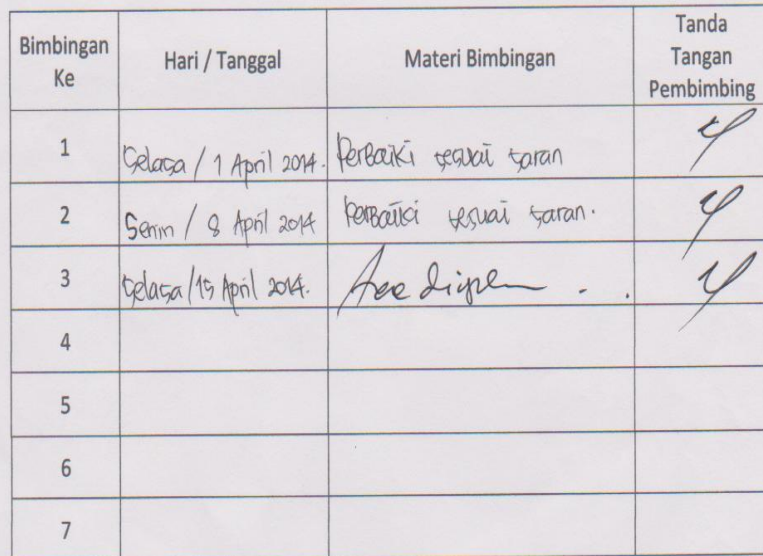 Bimbingan Ke Hari / Tanggal Materi Bimbingan Tanda Tangan Pembimbing
1 Selasa / 1 April 2014. Perbaiki sesuai saran
2 Senin / 8 April 2014 Perbaiki sesuai saran.
3 Selasa / 15 April 2014. Acc
4
5
6
7